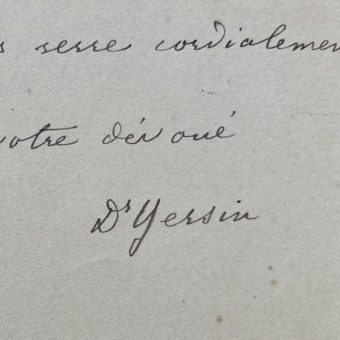 serre cordialemen
votre dévoué
Dr Yersin